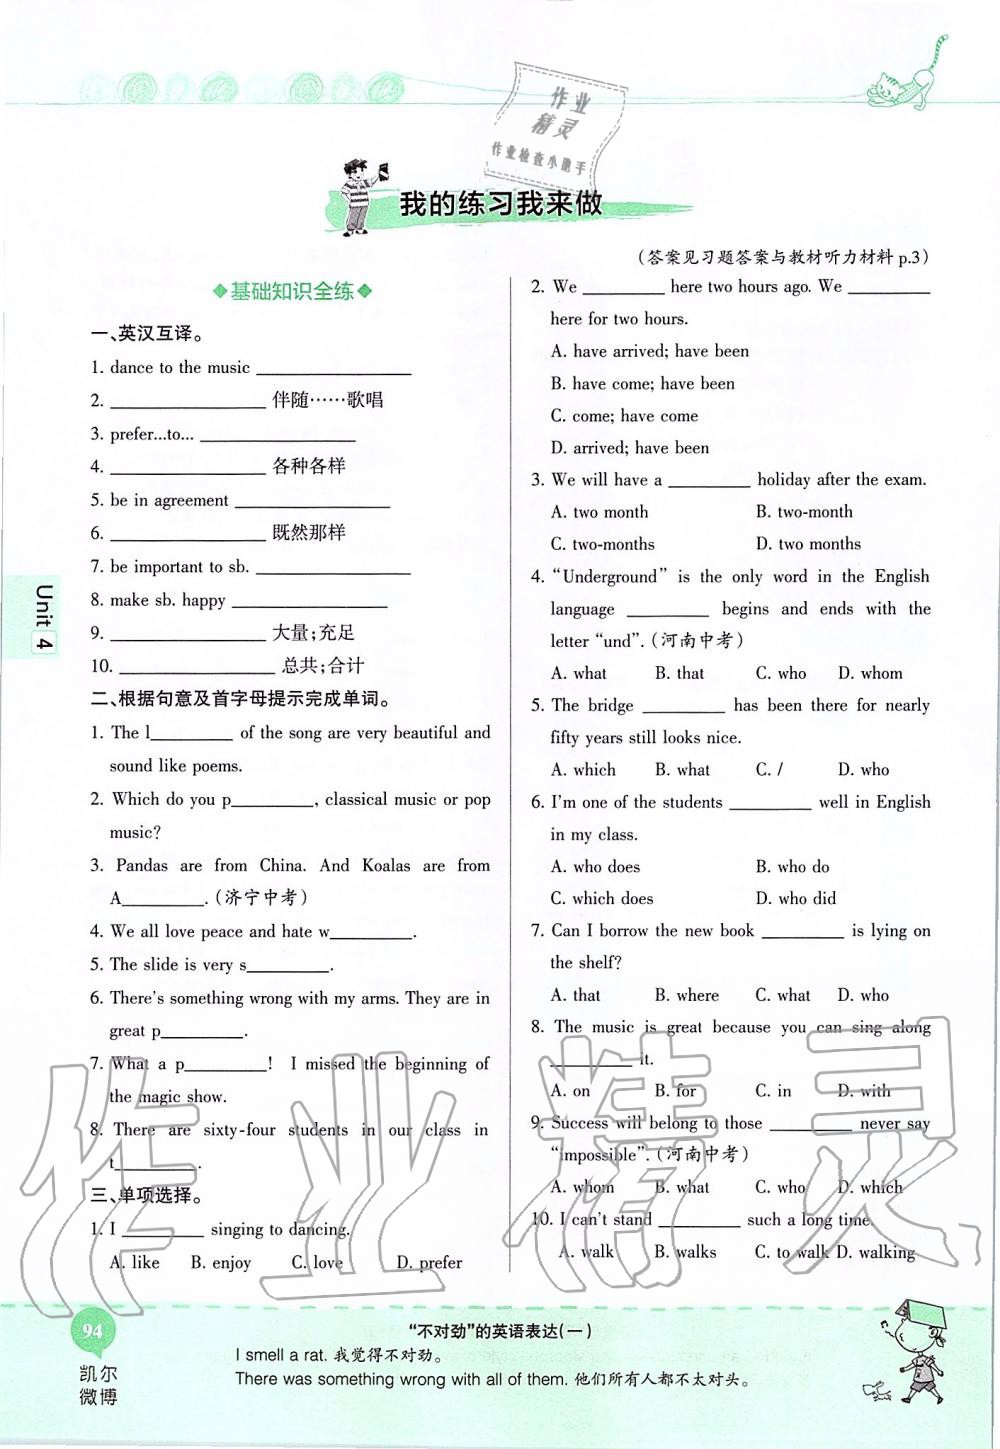 作业
精灵
作业检查小助手
我的练习我来做
(答案见习题答案与教材听力材料 p.3)
◆基础知识全练◆
一、英汉互译。
1. dance to the music ________
2. ________ 伴随……歌唱
3. prefer...to... ________
4. ________ 各种各样
5. be in agreement ________
6. ________ 既然那样
7. be important to sb. ________
8. make sb. happy ________
9. ________ 大量;充足
10. ________ 总共;合计
二、根据句意及首字母提示完成单词。
1. The l________ of the song are very beautiful and
sound like poems.
2. Which do you p________, classical music or pop
music?
3. Pandas are from China. And Koalas are from
A________. (济宁中考)
4. We all love peace and hate w________.
5. The slide is very s________.
6. There's something wrong with my arms. They are in
great p________.
7. What a p________! I missed the beginning of
the magic show.
8. There are sixty-four students in our class in
t________.
三、单项选择。
1. I ________ singing to dancing.
A. like B. enjoy C. love D. prefer
2. We ________ here two hours ago. We ________
here for two hours.
A. have arrived; have been
B. have come; have been
C. come; have come
D. arrived; have been
3. We will have a ________ holiday after the exam.
A. two month B. two-month
C. two-months D. two months
4. “Underground” is the only word in the English
language ________ begins and ends with the
letter “und”. (河南中考)
A. what B. that C. who D. whom
5. The bridge ________ has been there for nearly
fifty years still looks nice.
A. which B. what C. / D. who
6. I'm one of the students ________ well in English
in my class.
A. who does B. who do
C. which does D. who did
7. Can I borrow the new book ________ is lying on
the shelf?
A. that B. where C. what D. who
8. The music is great because you can sing along
________ it.
A. on B. for C. in D. with
9. Success will belong to those ________ never say
“impossible”. (河南中考)
A. whom B. what C. who D. which
10. I can't stand ________ such a long time.
A. walk B. walks C. to walk D. walking
Unit 4
作业精灵
94
凯尔
微博
“不对劲”的英语表达(一)
I smell a rat. 我觉得不对劲。
There was something wrong with all of them. 他们所有人都不太对头。